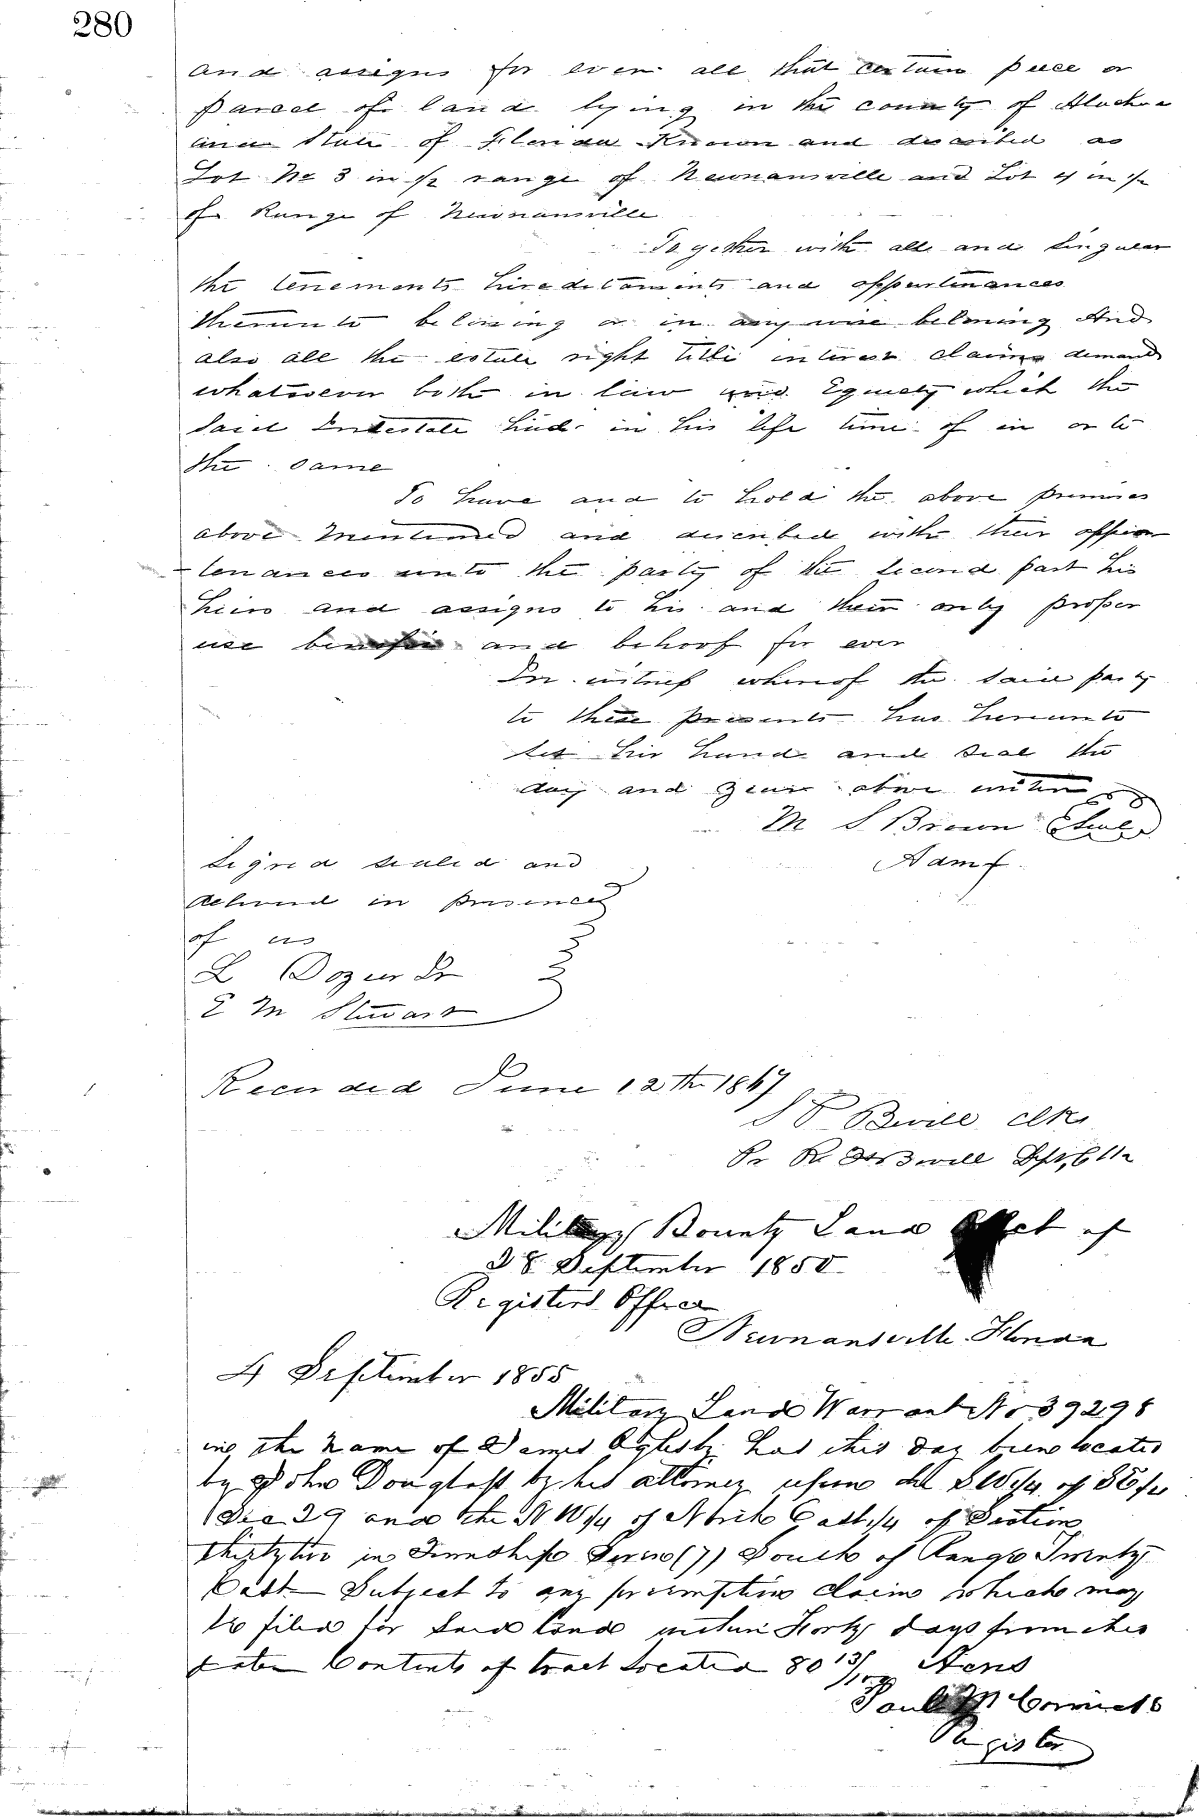 280
and assigns for ever all that certain peece or
parcel of land lying in the county of Alachua
and State of Florida Known and described as
Lot No 3 in 1/2 range of Newnansville and Lot 4 in 1/2
of Range of Newnansville
Together with all and singular
the tenements hireditaments and appurtinances
thereunto belonging or in any wise belonging And
also all the estate right title interest claim demand
whatsoever both in law and Equity which the
said Intestate had in his life time of in or to
the same
To have and to hold the above premises
above mentioned and described with their appur
tenances unto the party of the second part his
heirs and assigns to his and their only proper
use benefit and behoof for ever
In witness whereof the said party
to these presents has hereunto
set his hand and seal the
day and year above written
M S Brown Seal
Adm
Signed sealed and
delivered in presence
of us
L Dozier Jr
E M Stewart
Recorded June 12th 1867
S P Bevill Clk
Pr R H Bevill Dpt Clk
Military Bounty Land Act of
28 September 1850
Registers Office
Newnansville Florida
4 September 1855
Military Land Warrant No 39298
in the name of James Oglesby has this day been located
by John Douglass by his attorney upon the SW 1/4 of SE 1/4
Sec 29 and the NW 1/4 of North East 1/4 of Section
thirty two in Township Seven (7) South of Range Twenty
East Subject to any preemption claim which may
be filed for said land within Forty days from this
date Contents of tract located 80 13/100 Acres
Paul McCormick
Register